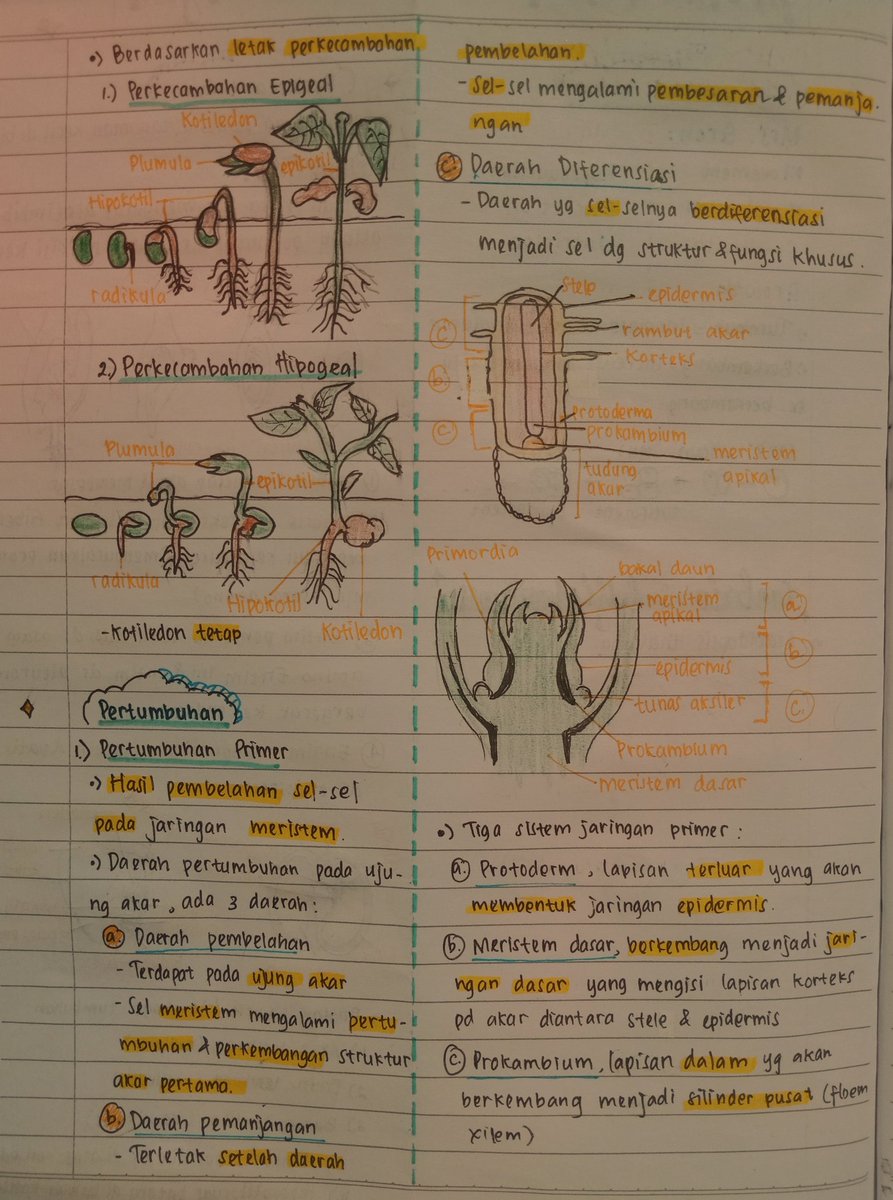 •) Berdasarkan letak perkecambahan.
1.) Perkecambahan Epigeal
Kotiledon
Plumula
epikotil
Hipokotil
radikula
2.) Perkecambahan Hipogeal
Plumula
epikotil
radikula
Hipokotil
Kotiledon
-Kotiledon tetap
Pertumbuhan
1.) Pertumbuhan Primer
•) Hasil pembelahan sel-sel
pada jaringan meristem.
•) Daerah pertumbuhan pada uju-
ng akar, ada 3 daerah:
a. Daerah pembelahan
- Terdapat pada ujung akar
- Sel meristem mengalami pertu-
mbuhan & perkembangan struktur
akar pertama.
b. Daerah pemanjangan
- Terletak setelah daerah
pembelahan.
- Sel-sel mengalami pembesaran & pemanja.
ngan
C. Daerah Diferensiasi
- Daerah yg sel-selnya berdiferensiasi
menjadi sel dg struktur & fungsi khusus.
stelp
epidermis
C
rambut akar
Korteks
b
protoderma
C
prokambium
meristem
apikal
tudung
akar
Primordia
bakal daun
meristem
apikal
a
epidermis
b
tunas aksiler
C.
Prokambium
meristem dasar
•) Tiga sistem jaringan primer:
a. Protoderm, lapisan terluar yang akan
membentuk jaringan epidermis.
b. Meristem dasar, berkembang menjadi jari-
ngan dasar yang mengisi lapisan korteks
pd akar diantara stele & epidermis
C. Prokambium, lapisan dalam yg akan
berkembang menjadi silinder pusat (floem
xilem)